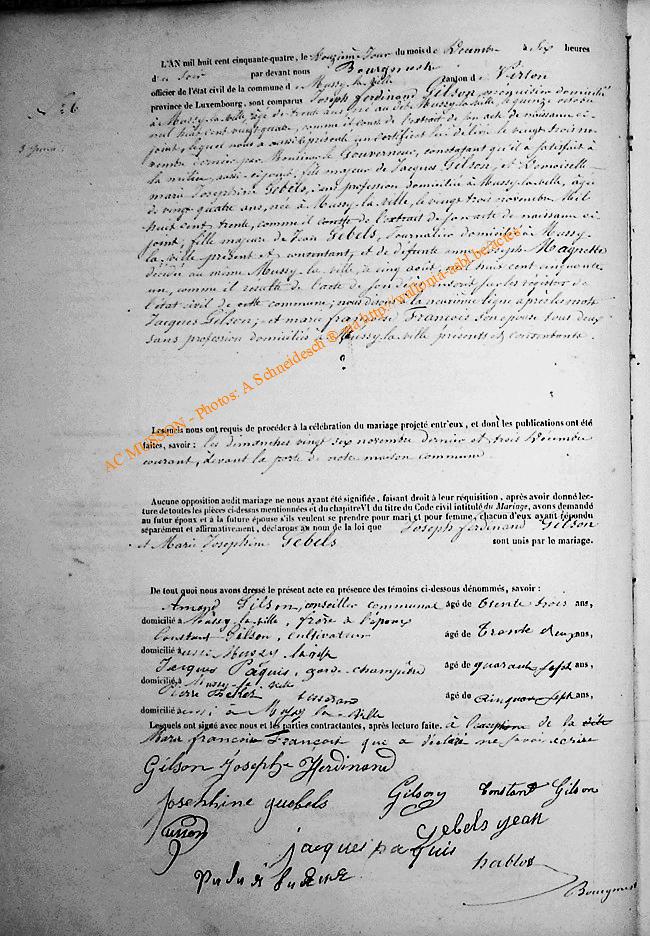 L'AN mil huit cent cinquante-quatre, le douzième jour du mois de Décembre à six heures
du soir par devant nous Bourgmestre
officier de l'état civil de la commune de Mussy-la-Ville canton de Virton
province de Luxembourg, sont comparus Joseph Ferdinand Gilson domicilié
à Mussy-la-ville, âgé de trente ans, né au dit Mussy-la-ville, le quinze octobre
mil huit cent vingt quatre, comme il conste de l'extrait de son acte de naissance ci-
joint, lequel nous a aussi présenté un certificat lui délivré le vingt trois no-
vembre dernier par Monsieur le Gouverneur, constatant qu'il a satisfait à
la milice, aussi ci-joint, fils majeur de Jacques Gilson, et Demoiselle
marie Josephine Gebels, sans profession domiciliée à Mussy-la-ville, âgée
de vingt quatre ans, née à Mussy-la-ville, le vingt trois novembre Mil
huit cent trente, comme il conste de l'extrait de son acte de naissance ci-
joint, fille majeure de Jean Gebels, Journalier domicilié à Mussy-
la-ville présent et consentant, et de défunte anne Joseph Magnette
décédée au même Mussy-la-ville, le cinq août mil huit cent cinquante
un, comme il résulte de l'acte de son décès inscrit sur les registres de
l'état civil de cette commune; nous disons à la neuvième ligne après les mots
Jacques Gilson, et marie françoise François son épouse tous deux
sans profession domiciliés à Mussy-la-ville présents et consentants.
Lesquels nous ont requis de procéder à la célébration du mariage projeté entr'eux, et dont les publications ont été
faites, savoir: les dimanches vingt six novembre dernier et trois Décembre
courant, devant la porte de notre maison commune
Aucune opposition audit mariage ne nous ayant été signifiée, faisant droit à leur réquisition, après avoir donné lec-
ture de toutes les pièces ci-dessus mentionnées et du chapitre VI du titre du Code civil intitulé du Mariage, avons demandé
au futur époux et à la future épouse s'ils veulent se prendre pour mari et pour femme, chacun d'eux ayant répondu
séparément et affirmativement, déclarons au nom de la loi que Joseph ferdinand Gilson
et Marie Josephine Gebels sont unis par le mariage.
De tout quoi nous avons dressé le présent acte en présence des témoins ci-dessous dénommés, savoir:
Amand Gilson, conseiller communal âgé de trente trois ans,
domicilié à Mussy-la-ville, frère de l'époux
Constant Gilson, cultivateur âgé de trente deux ans,
domicilié aussi Mussy-la-ville
Jacques Paquis, garde champêtre âgé de quarante sept ans,
domicilié à Mussy-la-ville
Pierre tisserand âgé de cinquante sept ans,
domicilié aussi à Mussy-la-ville
Lesquels ont signé avec nous et les parties contractantes, après lecture faite. à l'exception de la dite
Marie françoise François qui a déclaré ne savoir écrire
Gilson Josephe Fferdinand
Josephine guebels Gilson Constant Gilson
Gebels jean
jacques paquis
Bourgmest
AC MUSSON - Photos: A Schneidesch ® via http://wallonia-asbl.be/actes